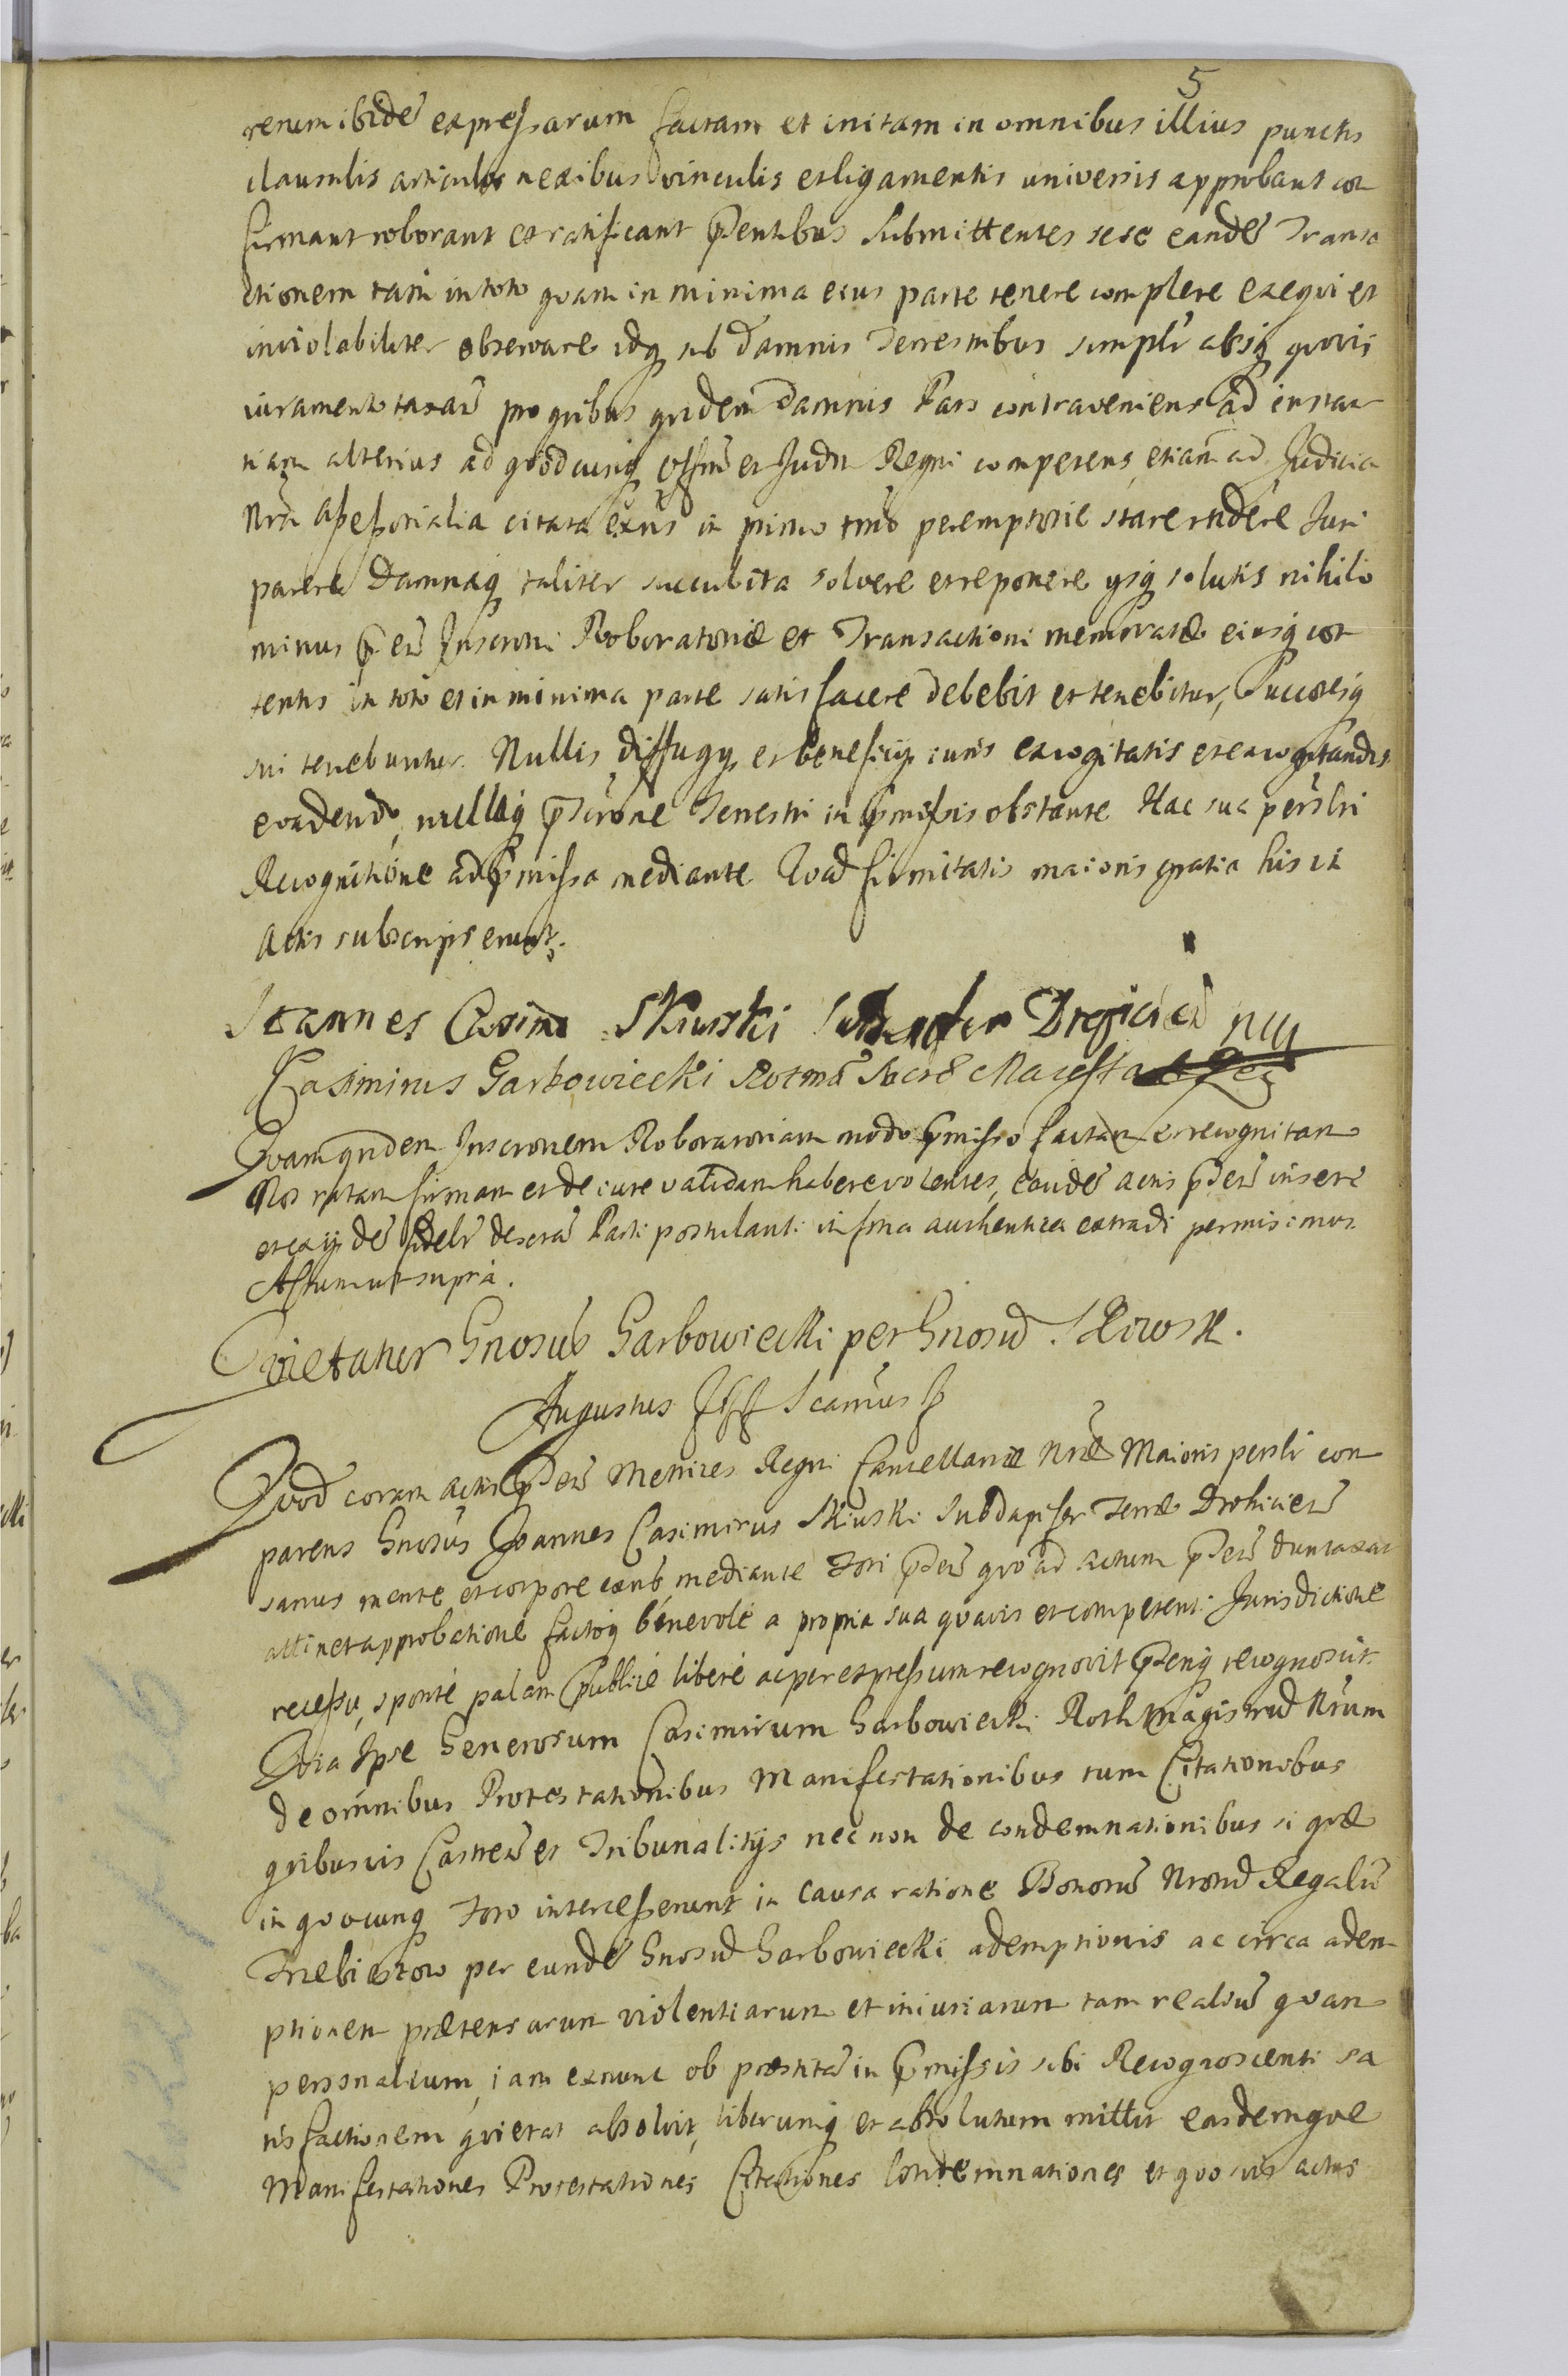 5
rerum ibidē expressarum factam et initam in omnibus illius punctis
clausulis articulis nexibus vinculis et ligamentis universis approbant con
firmant roborant et ratificant p̄entibus submittentes sese eandē Transa
ctionem tam in toto quam in minima eius parte tenere complere exequi et
inviolabiliter observare idq̨ sub damnis Terrestribus simplr absq̨ quovis
iuramento taxan̄ pro quibus quidem damnis Pars contraveniens ad instan
tiam alterius ad quodcunq̨ Offm̄ et Judm Regni competens etiam ad Judicia
Nrā assessorialia citata exn̄s in primo tmō peremptorie stare rndēre Juri
parere Damnaq̨ taliter succubita solvere et reponere ysq̨ solutis nihilo
minus p̄en̄ Inscroni Roboratoriæ et Transactioni memoratæ eiusq̨ con
tentis in toto et in minima parte satisfacere debebit et tenebitur, Succoresq̨
sui tenebuntur. Nullis diffugijs et beneficijs iuris excogitatis et excogitandis
evadendo, nullaq̨ p̄scrōne Terrestri in p̄missis obstante Hac sua persl̄ri
Recognitione ad p̄missa mediante Quod firmitatis maioris gratia his in
Actis subscripserunt.
Joannes Casim Skiwski Drogicien
Casimirus Garbowiecki Rotmā Sacræ Maiesta
Quamquidem Inscronem Roboratoriam modo p̄misso factam et recognitam
Nos ratam firmam et de iure validam habere volentes, eandē actis p̄ten̄ inseri
et ex ijsdē fidelr descrā Parti postulanti in fma authentica extradi permisimus.
Actum ut supra.
Quietatur Gnosus Garbowiecki per Gnosū Skiwsk.
Augustus IIdus Scamus
Quod coram actis p̄ten̄ Metrices Regni Cancellariæ Nræ Maioris persl̄r com
parens Gnosus Joannes Casimirus Skiwski Subdapifer Terræ Drohicien̄
sanus mente et corpore exn̄s mediante Fori p̄ten̄ quo ad actum p̄ten̄ duntaxat
attinet approbatione factoq̨ benevole a propria sua quavis et competenti Jurisdictione
recessu, sponte palam publice libere ac per expressum recognovit p̄tenq̨ recognoscit.
Quia Ipse Generosum Casimirum Garbowiecki Roth Magistrum Nrum
de omnibus Protestationibus Manifestationibus tum Citationibus
quibusvis Castren̄ et Tribunalitijs nec non de condemnationibus si quæ
in quocunq̨ Foro intercesserunt in causa ratione Bonorū Nrorū Regaliū
Trebieszow per eundē Gnosū Garbowiecki ademptionis ac circa adem
ptionem prætensarum violentiarum et iniuriarum tam realiū quam
personalium, iam exnunc ob præstitā in p̄missis sibi Recognoscenti sa
tisfactionem quietat absolvit, liberumq̨ et absolutum mittit easdemque
Manifestationes Protestationes Citationes Condemnationes et quosvis actus